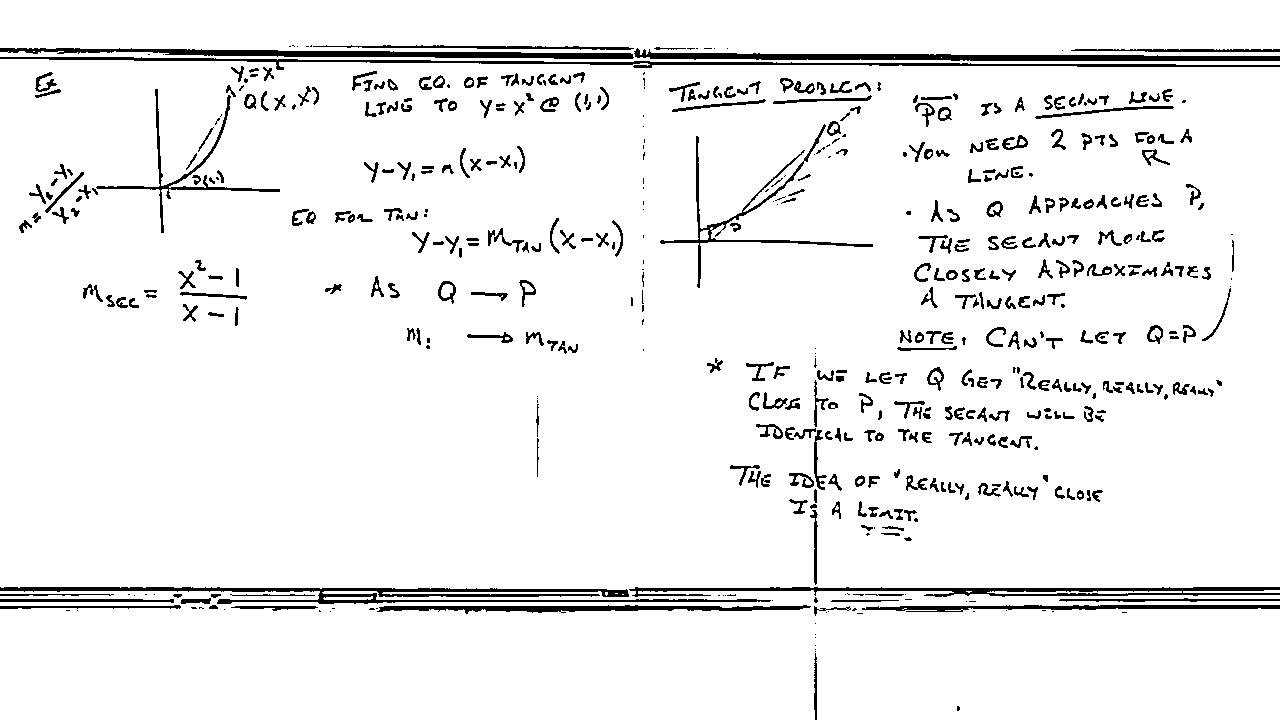 Ex
y=x²
Q(x,x²)
P(1,1)
m=y₂-y₁/x₂-x₁
FIND EQ. OF TANGENT
LINE TO y=x² @ (1,1)
y-y₁=m(x-x₁)
EQ FOR TAN:
y-y₁=m_TAN(x-x₁)
m_SEC = x²-1/x-1
* AS Q → P
→ m_TAN
TANGENT PROBLEM:
Q
P
"PQ" IS A SECANT LINE.
• YOU NEED 2 PTS FOR A
LINE.
• AS Q APPROACHES P,
THE SECANT MORE
CLOSELY APPROXIMATES
A TANGENT.
NOTE: CAN'T LET Q=P
* IF WE LET Q GET "REALLY, REALLY, REALLY"
CLOSE TO P, THE SECANT WILL BE
IDENTICAL TO THE TANGENT.
THE IDEA OF "REALLY, REALLY" CLOSE
IS A LIMIT.